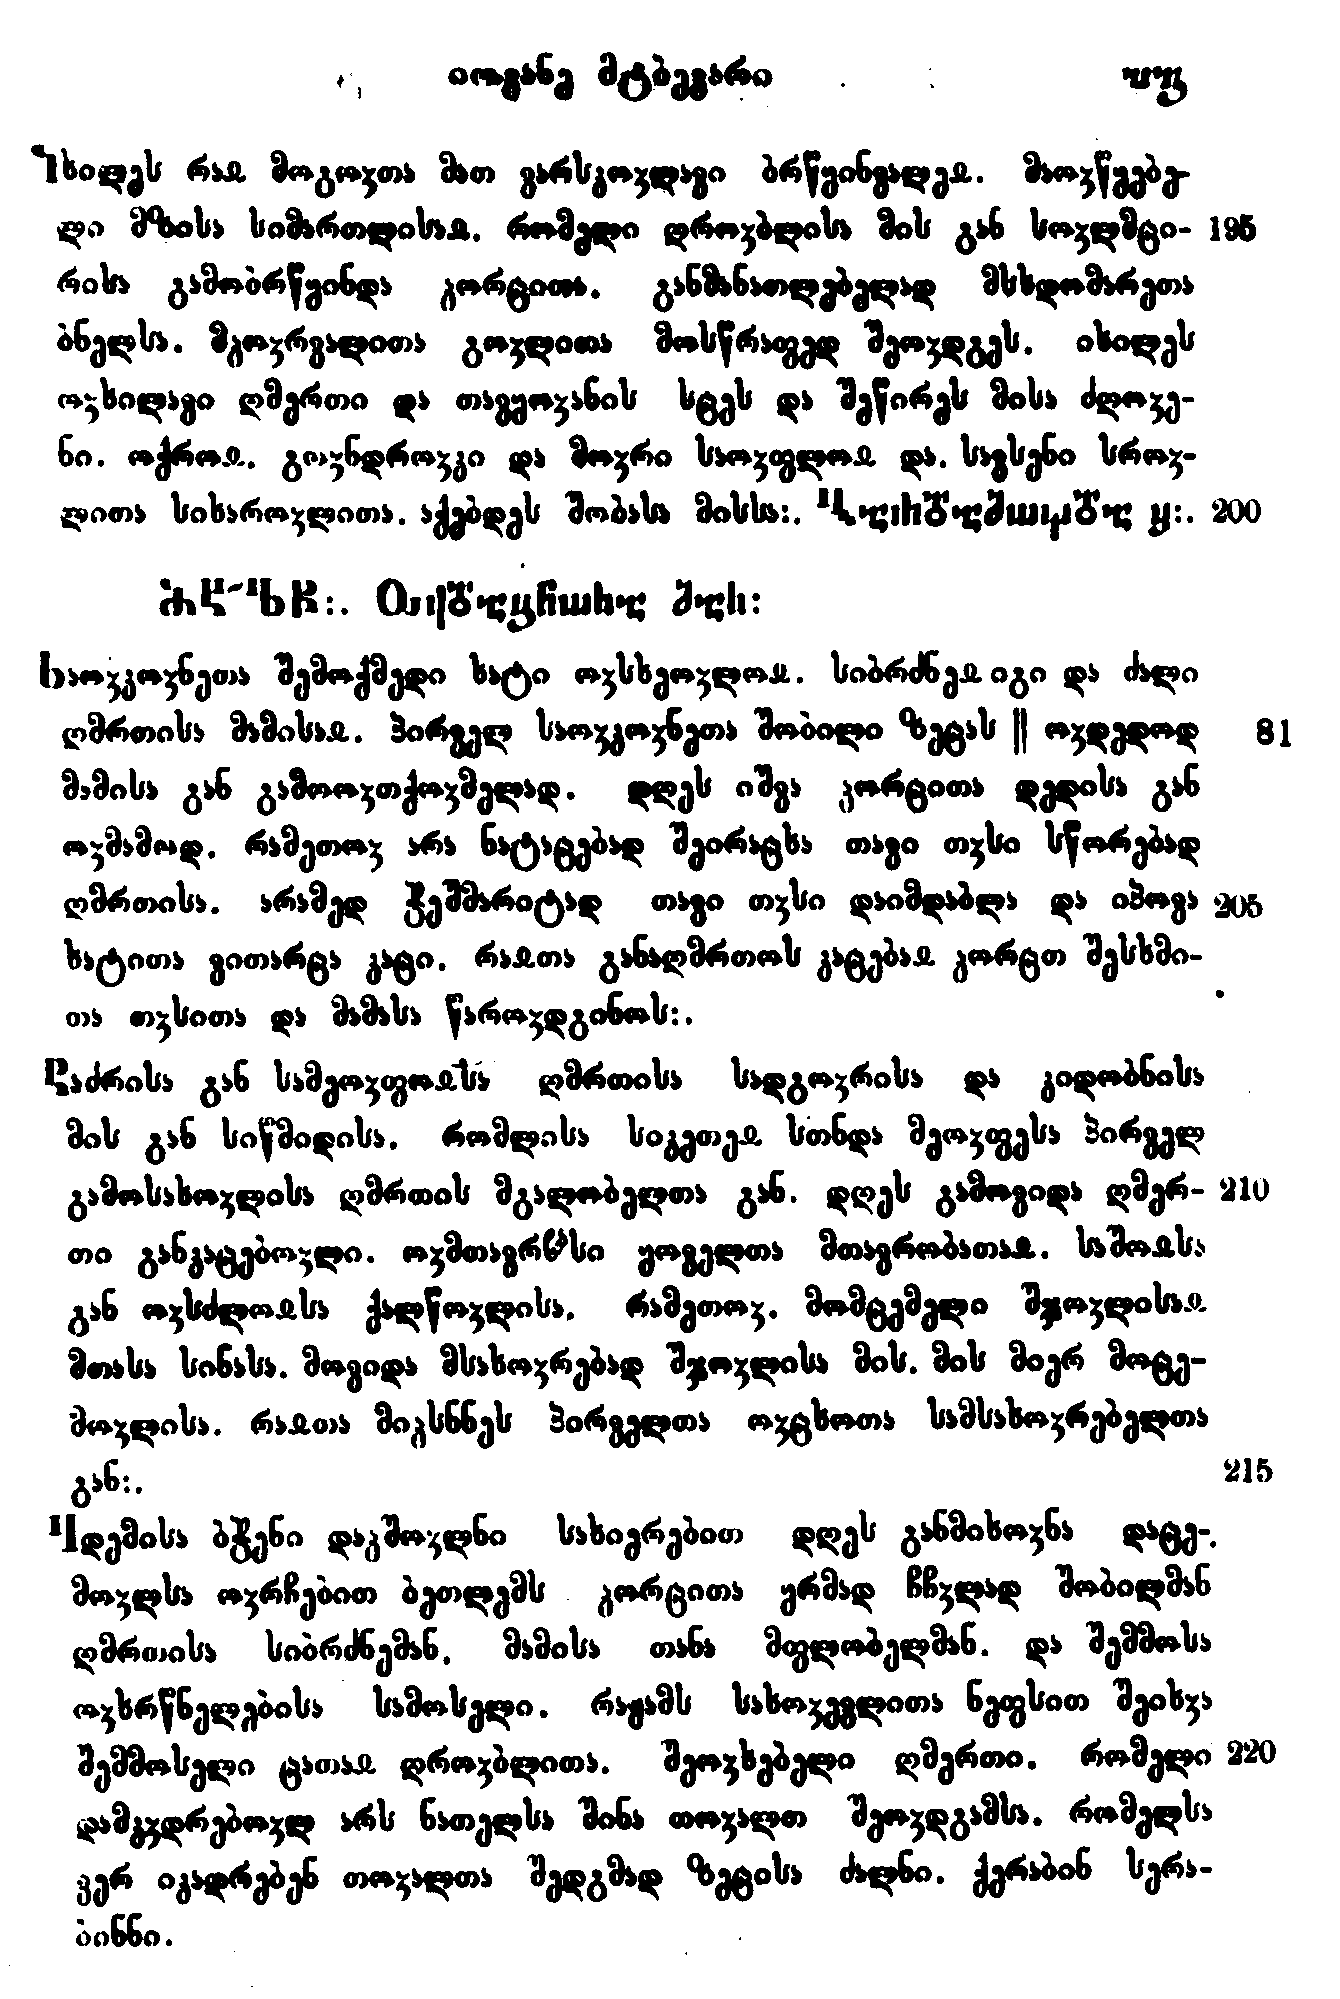 იოვანე მტბევარი
იხილეს რაჲ მოგოჳთა მათ ვარსკოჳლავი ბრწყინვალეჲ. მაოჳწყებე-
ლი მზისა სიმართლისაჲ. რომელი ღროჳბლისა მის გან სოჳლმცი- 195
რისა გამობრწყინდა ჴორცითა. განმანათლებელად მსხდომარეთა
ბნელსა. მკოჳრვალითა გოჳლითა მოსწრაფედ შეოჳდგეს. იხილეს
ოჳხილავი ღმერთი და თავყოჳანის სცეს და შეწირეს მისა ძღოჳე-
ნი. ოქროჲ. გოჳნდროჳკი და მოჳრი საოჳფლოჲ და. სავსენი სროჳ-
ლითა სიხაროჳლითა. აქებდეს შობასა მისსა:. 200
საოჳკოჳნეთა შემოქმედი ხატი ოჳსხეოჳლოჲ. სიბრძნეჲ იგი და ძალი
ღმრთისა მამისაჲ. პირველ საოჳკოჳნეთა შობილი ზეცას || ოჳდედოდ 81
მამისა გან გამოოჳთქოჳმელად. დღეს იშვა ჴორცითა დედისა გან
ოჳმამოდ. რამეთოჳ არა ნატაცებად შეირაცხა თავი თჳსი სწორებად
ღმრთისა. არამედ ჭეშმარიტად თავი თჳსი დაიმდაბლა და იპოვა 205
ხატითა ვითარცა კაცი. რაჲთა განაღმრთოს კაცებაჲ ჴორცთ შესხმი-
თა თჳსითა და მამასა წაროჳდგინოს:.
ტაძრისა გან სამეოჳფოჲსა ღმრთისა სადგოჳრისა და კიდობნისა
მის გან სიწმიდისა. რომლისა სიკეთეჲ სთნდა მეოჳფესა პირველ
გამოსახოჳლისა ღმრთის მგალობელთა გან. დღეს გამოვიდა ღმერ- 210
თი განკაცებოჳლი. ოჳმთავრესი ყოველთა მთავრობათაჲ. საშოჲსა
გან ოჳსძლოჲსა ქალწოჳლისა. რამეთოჳ. მომცემელი შჯოჳლისაჲ
მთასა სინასა. მოვიდა მსახოჳრებად შჯოჳლისა მის. მის მიერ მოცე-
მოჳლისა. რაჲთა მიჴსნნეს პირველთა ოჳცხოთა სამსახოჳრებელთა
გან:. 215
ადემისა ბჭენი დაჴშოჳლნი სახიერებით დღეს განმიხოჳნა დაცე-
მოჳლსა ოჳრჩებით ბეთლემს ჴორცითა ყრმად ჩჩჳლად შობილმან
ღმრთისა სიბრძნემან. მამისა თანა მფლობელმან. და შემმოსა
ოჳხრწნელებისა სამოსელი. რაჟამს სახოჳევლითა ნეფსით შეიხჳა
შემმოსელი ცათაჲ ღროჳბლითა. შეოჳხებელი ღმერთი. რომელი 220
დამკჳდრებოჳლ არს ნათელსა შინა თოჳალთ შეოჳდგამსა. რომელსა
ვერ იკადრებენ თოჳალთა შედგმად ზეცისა ძალნი. ქერაბინ სერა-
ბინნი.